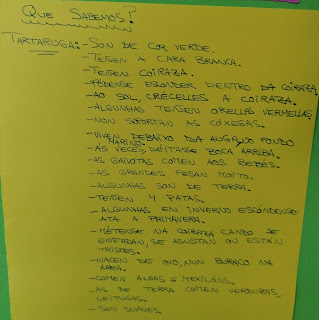 QUE SABEMOS?
TARTARUGA: - SON DE COR VERDE.
- TEÑEN A CARA BRANCA.
- TEÑEN COIRAZA.
- PÓDENSE ESCONDER DENTRO DA COIRAZA
- AO SOL, CRÉCELLES A COIRAZA.
- ALGUNHAS TEÑEN ORELLAS VERMELLAS
- NON SOPORTAN AS CÓXEGAS.
- VIVEN DEBAIXO DA AUGA, NO FONDO
MARIÑO.
- ÁS VECES, DÉITANSE BOCA ARRIBA.
- AS GAIVOTAS COMEN AOS BEBÉS.
- AS GRANDES PESAN MOITO.
- ALGUNHAS SON DE TERRA.
- TEÑEN 4 PATAS.
- ALGUNHAS EN INVERNO ESCÓNDENSE
ATA A PRIMAVERA.
- MÉTENSE NA COIRAZA CANDO SE
ENFADAN, SE ASUSTAN OU ESTÁN
TRISTES.
- NACEN DE OVO, NUN BURACO NA
AREA.
- COMEN ALGAS E MEXILÓNS.
- AS DE TERRA COMEN VERDURAS,
LEITUGAS.
- SON SUAVES.